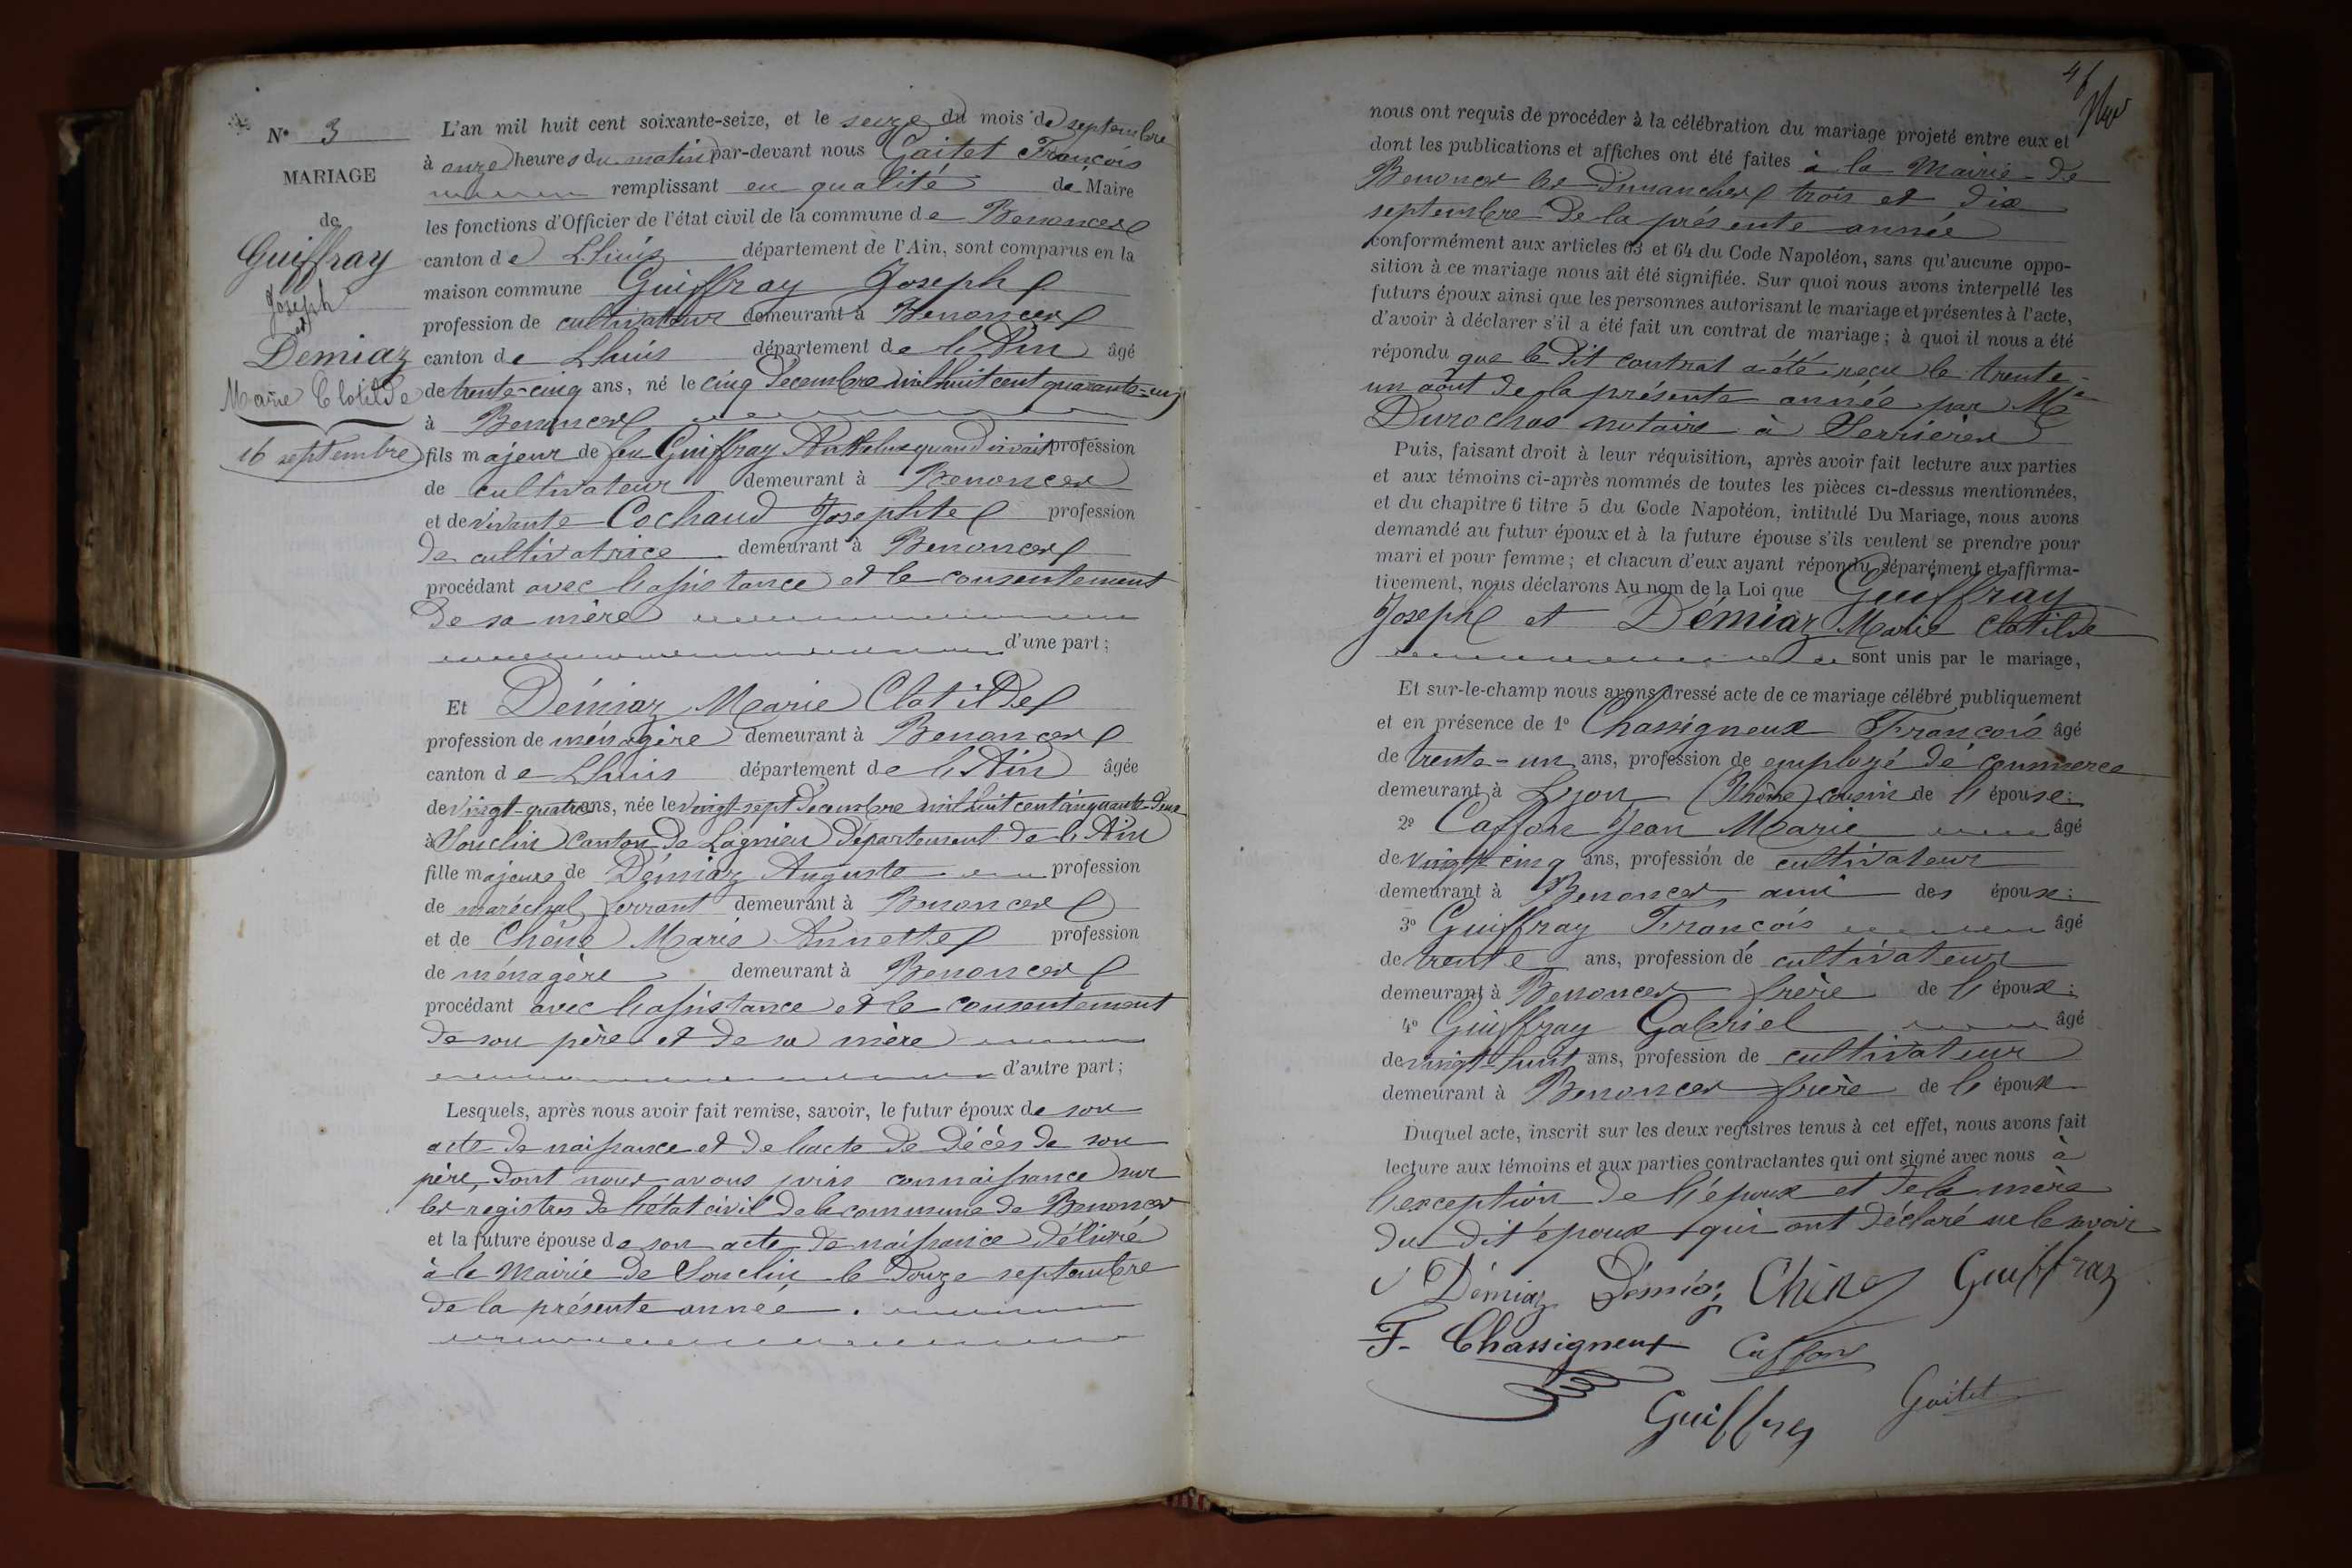 N° 3
MARIAGE
de
Guiffray
Joseph
et
Demiaz
Marie Clotilde
16 septembre
L'an mil huit cent soixante-seize, et le seize du mois de septembre
à onze heures du matin par-devant nous Gaitet François
remplissant en qualité de Maire
les fonctions d'Officier de l'état civil de la commune de Benonces
canton de Lhuis département de l'Ain, sont comparus en la
maison commune Guiffray Joseph
profession de cultivateur demeurant à Benonces
canton de Lhuis département de l'Ain âgé
de trente-cinq ans, né le cinq Décembre mil huit cent quarante-un
à Benonces
fils majeur de feu Guiffray Anthelme quand vivait profession
de cultivateur demeurant à Benonces
et de vivante Cochaud Josephte profession
de cultivatrice demeurant à Benonces
procédant avec l'assistance et le consentement
de sa mère
d'une part;
Et Démiaz Marie Clotilde
profession de ménagère demeurant à Benonces
canton de Lhuis département de l'Ain âgée
de vingt-quatre ans, née le vingt-sept Décembre mil huit cent cinquante-deux
à Souclin canton de Lagnieu département de l'Ain
fille majeure de Démiaz Auguste profession
de maréchal ferrant demeurant à Benonces
et de Chêne Marie Annette profession
de ménagère demeurant à Benonces
procédant avec l'assistance et le consentement
de son père et de sa mère
d'autre part;
Lesquels, après nous avoir fait remise, savoir, le futur époux de son
acte de naissance et de l'acte de décès de son
père, dont nous avons pris connaissance sur
les registres de l'état civil de la commune de Benonces
et la future épouse de son acte de naissance délivré
à la Mairie de Souclin le douze septembre
de la présente année.
nous ont requis de procéder à la célébration du mariage projeté entre eux et
dont les publications et affiches ont été faites à la Mairie de
Benonces les Dimanches trois et dix
septembre de la présente année
conformément aux articles 63 et 64 du Code Napoléon, sans qu'aucune oppo-
sition à ce mariage nous ait été signifiée. Sur quoi nous avons interpellé les
futurs époux ainsi que les personnes autorisant le mariage et présentes à l'acte,
d'avoir à déclarer s'il a été fait un contrat de mariage; à quoi il nous a été
répondu que le dit contrat a été reçu le trente-
un août de la présente année par Me
Durochas notaire à Serrières
Puis, faisant droit à leur réquisition, après avoir fait lecture aux parties
et aux témoins ci-après nommés de toutes les pièces ci-dessus mentionnées,
et du chapitre 6 titre 5 du Code Napoléon, intitulé Du Mariage, nous avons
demandé au futur époux et à la future épouse s'ils veulent se prendre pour
mari et pour femme; et chacun d'eux ayant répondu séparément et affirma-
tivement, nous déclarons Au nom de la Loi que Guiffray
Joseph et Démiaz Marie Clotilde
sont unis par le mariage,
Et sur-le-champ nous avons dressé acte de ce mariage célébré publiquement
et en présence de 1° Chassigneux François âgé
de trente-un ans, profession de employé de commerce
demeurant à Lyon (Rhône) cousin de l'épouse;
2° Caffon Jean Marie âgé
de vingt cinq ans, profession de cultivateur
demeurant à Benonces ami des époux;
3° Guiffray François âgé
de trente ans, profession de cultivateur
demeurant à Benonces frère de l'époux;
4° Guiffray Gabriel âgé
de vingt-huit ans, profession de cultivateur
demeurant à Benonces frère de l'époux
Duquel acte, inscrit sur les deux registres tenus à cet effet, nous avons fait
lecture aux témoins et aux parties contractantes qui ont signé avec nous à
l'exception de l'époux et de la mère
du dit époux qui ont déclaré ne le savoir
Démiaz Démiaz Chêne Guiffray
F. Chassigneux Caffon
Guiffray Gaitet